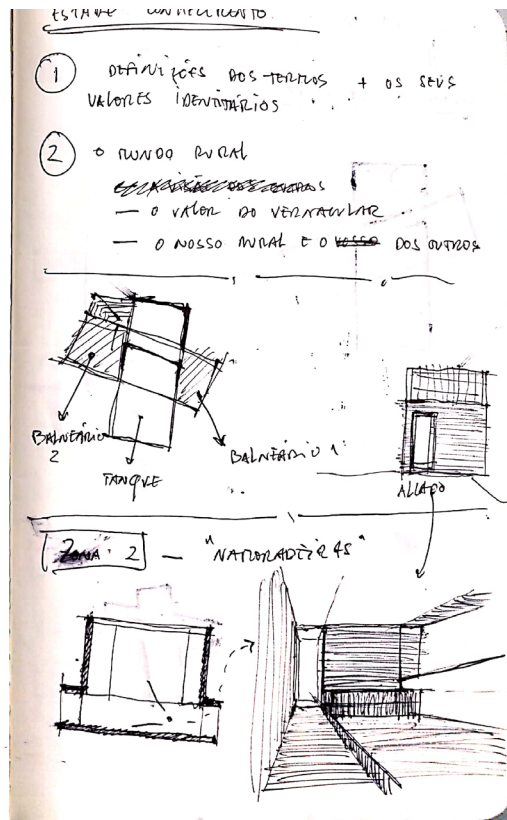 ESTADO CONHECIMENTO
1 DEFINIÇÕES DOS TERMOS + OS SEUS
VALORES IDENTITÁRIOS
2 O MUNDO RURAL
— O VALOR DO VERNACULAR
— O NOSSO RURAL E O VOSSO DOS OUTROS
BALNEÁRIO
2
TANQUE
BALNEÁRIO 1
ALÇADO
ZONA 2 — "NAMORADEIRAS"